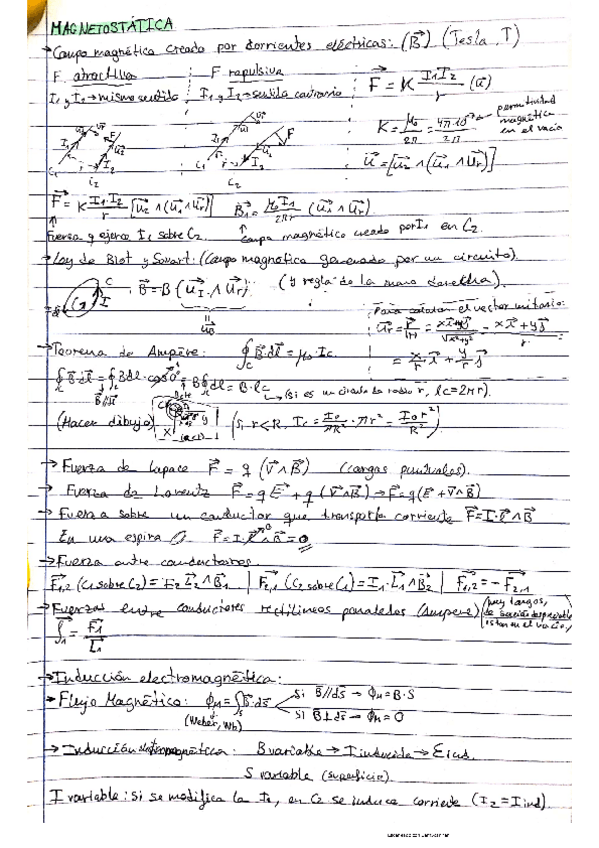 MAGNETOSTÁTICA
→ Campo magnético creado por corrientes eléctricas: (B⃗) (Tesla, T)
F atractiva F repulsiva F⃗ = K I₁I₂/r (u⃗)
I₁ y I₂ → mismo sentido I₁ y I₂ → sentido contrario
K = μ₀/2π = 4π·10⁻⁷/2π ← permitividad magnética en el vacío
u⃗ = [u⃗₂ ∧ (u⃗₁ ∧ u⃗r)]
C₁ C₂ C₁ C₂
F⃗ = K I₁·I₂/r [u⃗₂ ∧ (u⃗₁ ∧ u⃗r)] B⃗₁ = μ₀I₁/2πr (u⃗₁ ∧ u⃗r)
Fuerza q ejerce I₁ sobre C₂. Campo magnético creado por I₁ en C₂.
→ Ley de Biot y Savart: (Campo magnético generado por un circuito).
B⃗ = B (u⃗I ∧ u⃗r) (y regla de la mano derecha).
u⃗B
Para calcular el vector unitario:
u⃗r = r⃗/|r| = xi⃗+yj⃗/√x²+y² = xi⃗+yj⃗/r
= x/r i⃗ + y/r j⃗
→ Teorema de Ampère: ∮c B⃗·dl⃗ = μ₀·Ic
∮c B⃗·dl⃗ = ∮c Bdl·cos0° = B∮c dl = B·lc
B⃗//dl⃗ → (si es un círculo de radio r, lc=2πr).
(Hacer dibujo) (Si r<R, Ic = I₀/πR² · πr² = I₀r²/R²)
→ Fuerza de Lapace F⃗ = q (V⃗∧B⃗) (cargas puntuales).
→ Fuerza de Lorentz F⃗ = qE⃗ + q (V⃗∧B⃗) → F⃗ = q(E⃗ + V⃗∧B⃗)
→ Fuerza sobre un conductor que transporta corriente F⃗ = I·l⃗∧B⃗
En una espira F⃗ = I·l⃗∧B⃗ = 0
→ Fuerza entre conductores
F⃗₁,₂ (C₁ sobre C₂) = I₂ L⃗₂∧B⃗₁ | F⃗₂,₁ (C₂ sobre C₁) = I₁·L⃗₁∧B⃗₂ | F⃗₁,₂ = −F⃗₂,₁
→ Fuerzas entre conductores rectilíneos paralelos (Ampere) (muy largos, de sección despreciable, están en el vacío)
f⃗₁ = F⃗₁/L₁
→ Inducción electromagnética:
→ Flujo Magnético: ϕM = ∫s B⃗·ds⃗ Si B⃗//ds⃗ → ϕM = B·S
(Weber, Wb) Si B⃗⊥ds⃗ → ϕM = 0
→ Inducción electromagnética: B variable → I inducida → εind.
S variable (superficie)
I variable: si se modifica la I₁, en C₂ se induce corriente (I₂ = Iind).